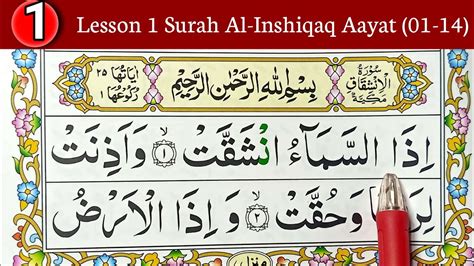 1 Lesson 1 Surah Al-Inshiqaq Aayat (01-14)
اٰيَاتُهَا ٢٥ رُكُوْعُهَا ١
بِسْمِ اللّٰهِ الرَّحْمٰنِ الرَّحِيْمِ
سُوْرَةُ الْاِنْشِقَاقِ مَكِّيَّةٌ
اِذَا السَّمَآءُ انْشَقَّتْ ۙ ١ وَاَذِنَتْ
وَحُقَّتْ ۙ ٢ وَ اِذَا الْاَرْضُ
منزل